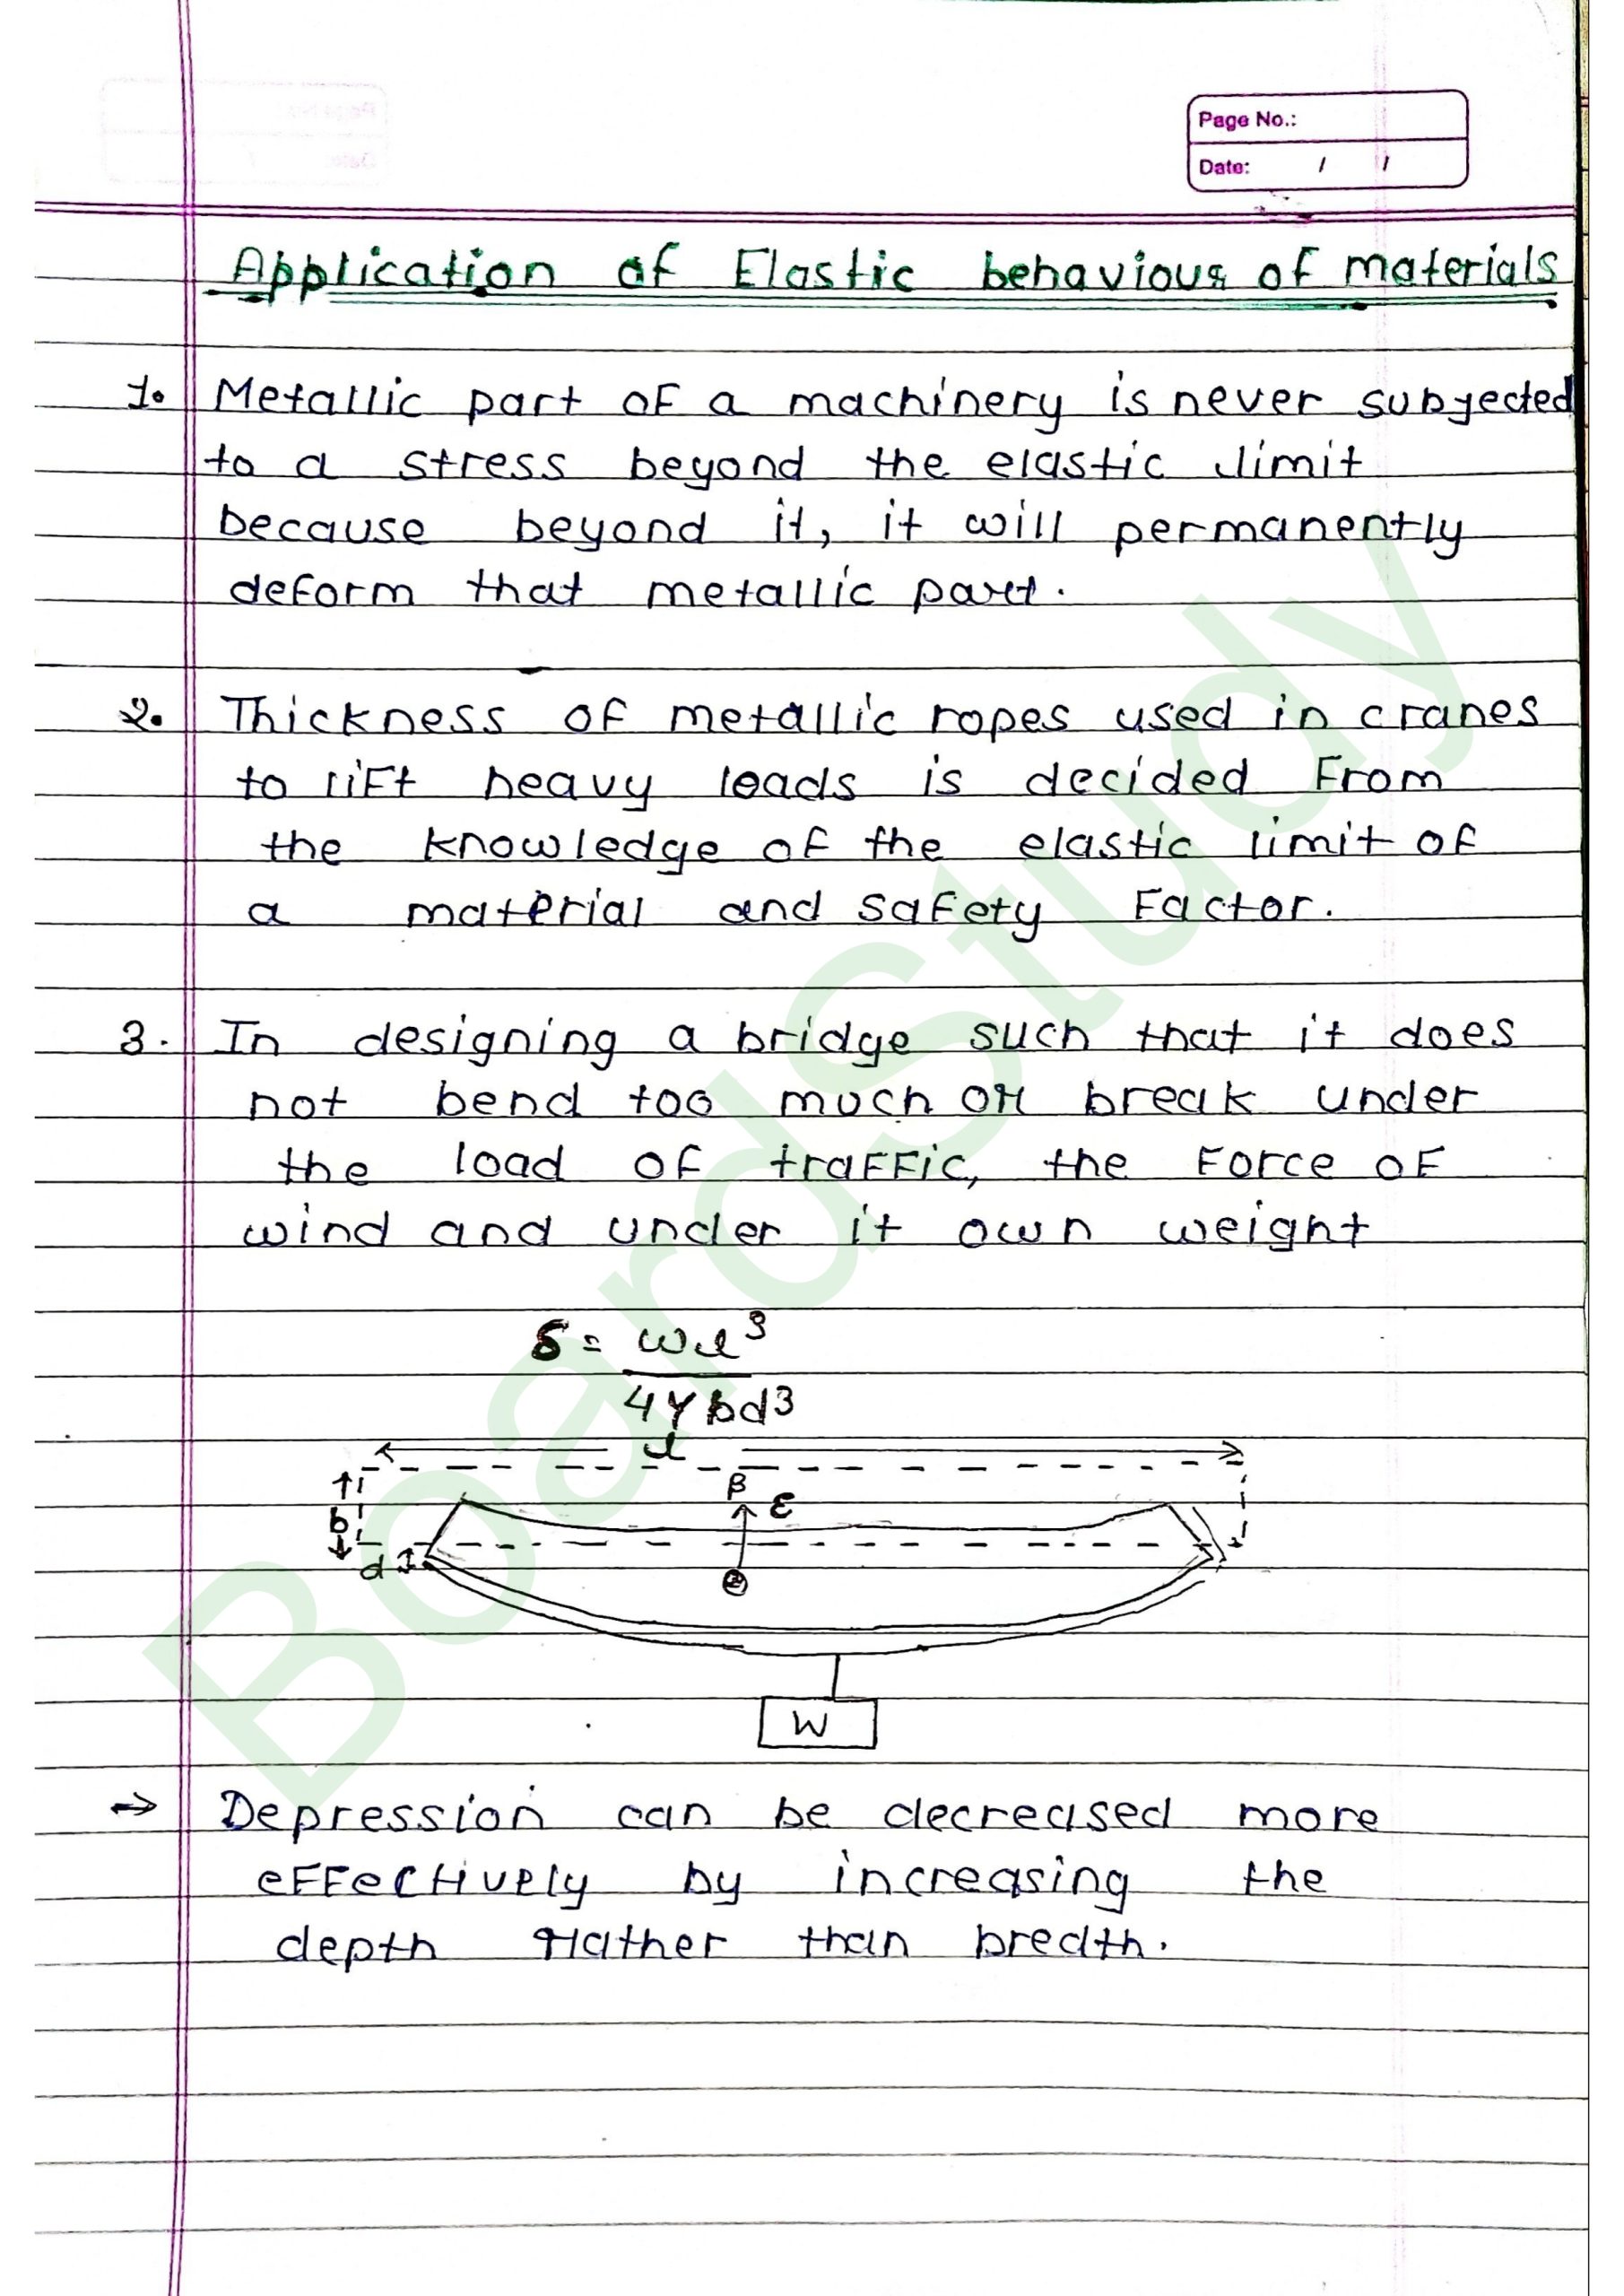 Page No.:
Date: / /
Application of Elastic behaviour of materials
1. Metallic part of a machinery is never subyected
to a stress beyond the elastic limit
because beyond it, it will permanently
deform that metallic part.
2. Thickness of metallic ropes used in cranes
to lift heavy loads is decided from
the knowledge of the elastic limit of
a material and safety factor.
3. In designing a bridge such that it does
not bend too much or break under
the load of traffic, the force of
wind and under it own weight
δ = wl³
4Ybd³
l
β
ε
b
d
W
→ Depression can be decreased more
effectively by increasing the
depth rather than bredth.
BoardStudy